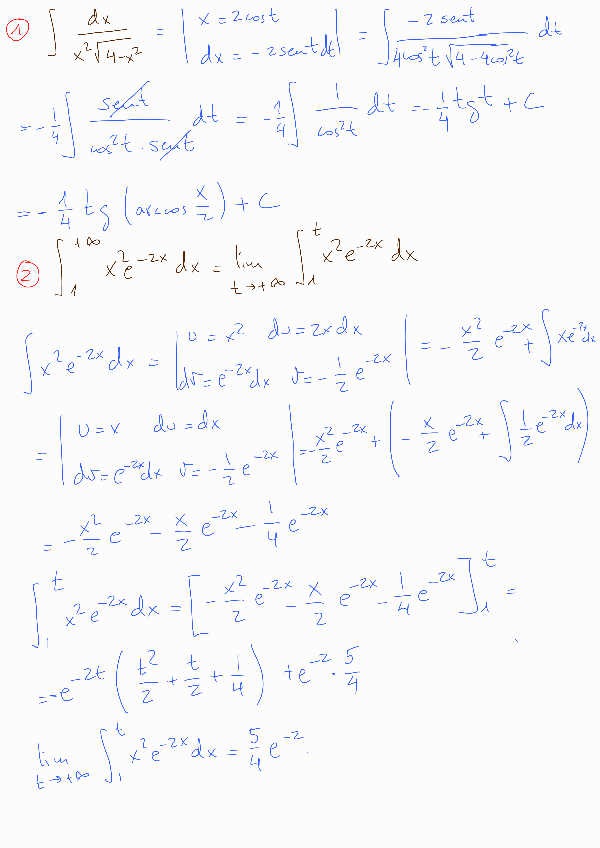 ① ∫ dx / (x²√(4-x²)) = | x = 2cost dx = -2sent dt | = ∫ -2sent / (4cos²t √(4-4cos²t)) dt
= -1/4 ∫ sent / (cos²t · sent) dt = -1/4 ∫ 1/cos²t dt = -1/4 tg t + C
= -1/4 tg (arccos x/2) + C
② ∫₁^{+∞} x²e^{-2x} dx = lim_{t→+∞} ∫₁^t x²e^{-2x} dx
∫ x²e^{-2x} dx = | u = x² du = 2x dx dv = e^{-2x}dx v = -1/2 e^{-2x} | = -x²/2 e^{-2x} + ∫ xe^{-2x} dx
= | u = x du = dx dv = e^{-2x}dx v = -1/2 e^{-2x} | = -x²/2 e^{-2x} + ( -x/2 e^{-2x} + ∫ 1/2 e^{-2x} dx )
= -x²/2 e^{-2x} - x/2 e^{-2x} - 1/4 e^{-2x}
∫₁^t x²e^{-2x} dx = [ -x²/2 e^{-2x} - x/2 e^{-2x} - 1/4 e^{-2x} ]₁^t =
= -e^{-2t} ( t²/2 + t/2 + 1/4 ) + e^{-2} · 5/4
lim_{t→+∞} ∫₁^t x²e^{-2x} dx = 5/4 e^{-2}.